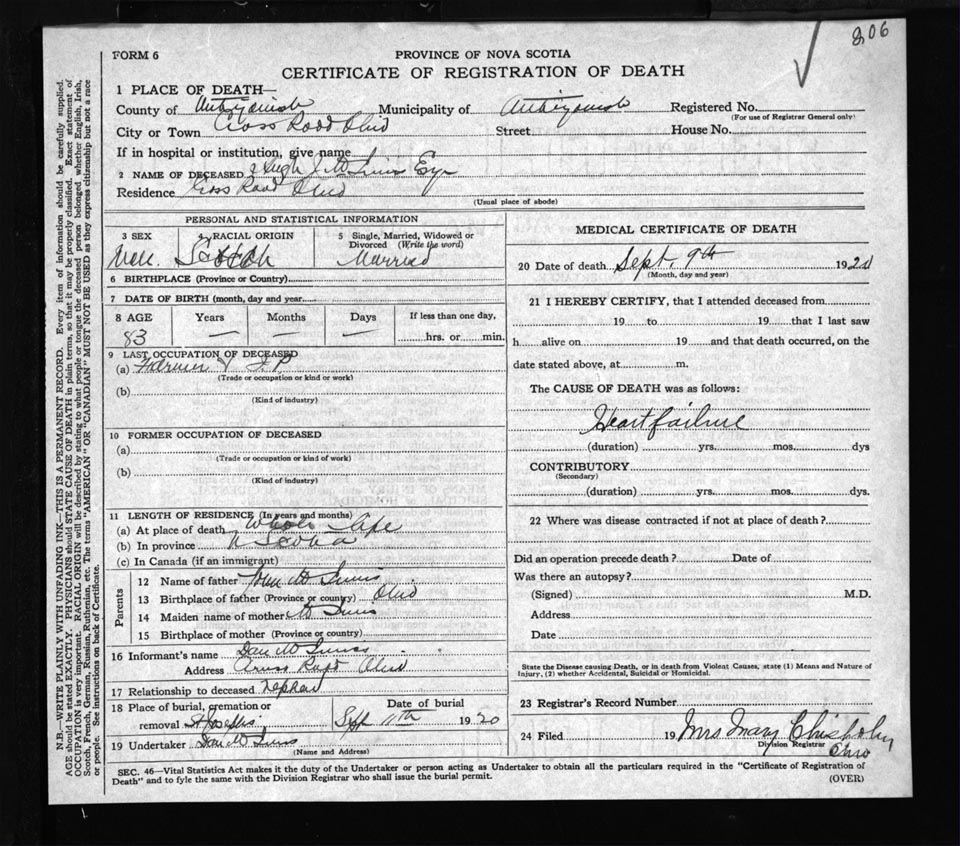 206
FORM 6
PROVINCE OF NOVA SCOTIA
CERTIFICATE OF REGISTRATION OF DEATH
1 PLACE OF DEATH—
County of Antigonish Municipality of Antigonish Registered No.
(For use of Registrar General only)
City or Town Cross Road Ohio Street House No.
If in hospital or institution, give name
2 NAME OF DECEASED Hugh J Esqr
Residence Cross Road Ohio
(Usual place of abode)
PERSONAL AND STATISTICAL INFORMATION
3 SEX 4 RACIAL ORIGIN 5 Single, Married, Widowed or Divorced (Write the word)
Male. Scotch Married
6 BIRTHPLACE (Province or Country)
7 DATE OF BIRTH (month, day and year
8 AGE Years Months Days If less than one day,
83 — — — hrs. or min.
9 LAST OCCUPATION OF DECEASED
(a) Farmer & J.P.
(Trade or occupation or kind or work)
(b)
(Kind of industry)
10 FORMER OCCUPATION OF DECEASED
(a)
(Trade or occupation or kind of work)
(b)
(Kind of industry)
11 LENGTH OF RESIDENCE (In years and months)
(a) At place of death Whole Life
(b) In province N Scotia
(c) In Canada (if an immigrant)
Parents
12 Name of father
13 Birthplace of father (Province or country) Ohio
14 Maiden name of mother
15 Birthplace of mother (Province or country)
16 Informant's name Dan
Address Cross Road Ohio
17 Relationship to deceased Nephew
18 Place of burial, cremation or removal St Josephs Date of burial Sept 11th 1920
19 Undertaker Dan
(Name and Address)
MEDICAL CERTIFICATE OF DEATH
20 Date of death Sept. 9th 1920
(Month, day and year)
21 I HEREBY CERTIFY, that I attended deceased from
19 to 19 that I last saw
h alive on 19 and that death occurred, on the
date stated above, at m.
The CAUSE OF DEATH was as follows:
Heart failure
(duration) yrs. mos. dys
CONTRIBUTORY
(Secondary)
(duration) yrs. mos. dys.
22 Where was disease contracted if not at place of death?
Did an operation precede death? Date of
Was there an autopsy?
(Signed) M.D.
Address
Date
State the Disease causing Death, or in death from Violent Causes, state (1) Means and Nature of
Injury, (2) whether Accidental, Suicidal or Homicidal.
23 Registrar's Record Number
24 Filed 19 Mrs Mary Chisholm
Division Registrar
Ohio
SEC. 46—Vital Statistics Act makes it the duty of the Undertaker or person acting as Undertaker to obtain all the particulars required in the "Certificate of Registration of
Death" and to fyle the same with the Division Registrar who shall issue the burial permit. (OVER)
N.B.—WRITE PLAINLY WITH UNFADING INK—THIS IS A PERMANENT RECORD. Every item of information should be carefully supplied.
AGE should be stated EXACTLY. PHYSICIANS should STATE CAUSE OF DEATH in plain terms, so that it may be properly classified. Exact statement of
OCCUPATION is very important. RACIAL ORIGIN will be described by stating to what people or tongue the deceased person belonged whether English, Irish,
Scotch, French, German, Russian, Ruthenian, etc. The terms "AMERICAN" OR "CANADIAN" MUST NOT BE USED as they express citizenship but not a race
or people. See instructions on back of Certificate.